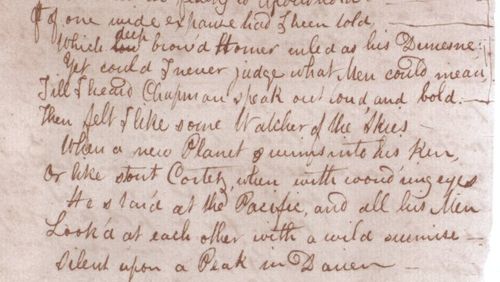 Oft of one wide expanse had I been told,
Which deep brow'd Homer ruled as his Demesne:
Yet could I never judge what Men could mean,
Till I heard Chapman speak out loud and bold.—
Then felt I like some Watcher of the Skies
When a new Planet swims into his Ken,
Or like stout Cortez, when with wond'ring eyes
He star'd at the Pacific, and all his Men
Look'd at each other with a wild surmise —
Silent upon a Peak in Darien —